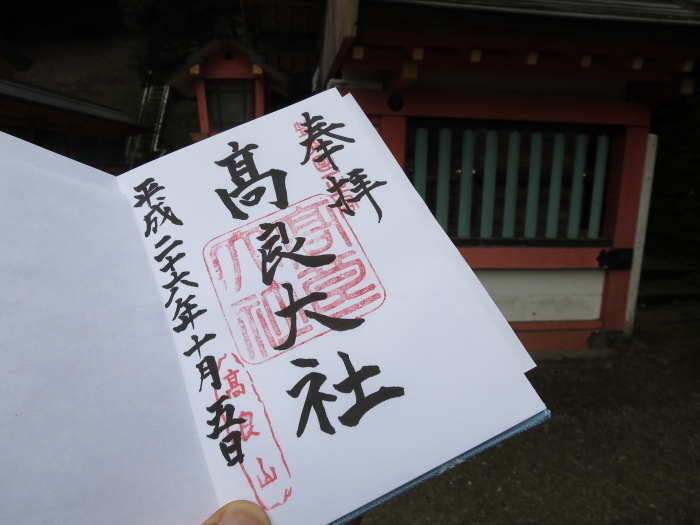 奉拝
髙良大社
平成二十六年十月五日
髙良大社
髙良山